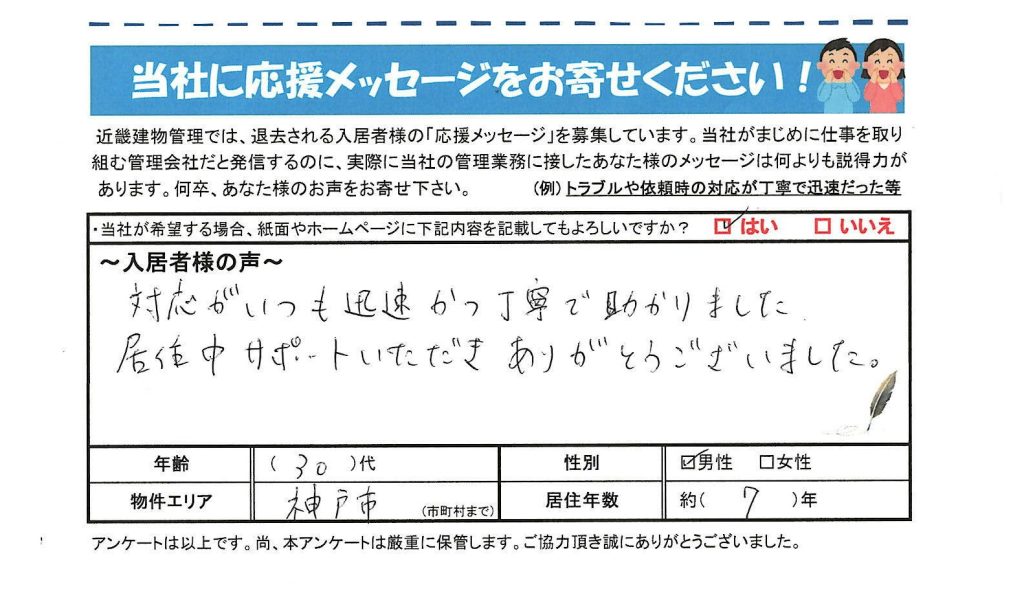 当社に応援メッセージをお寄せください！
近畿建物管理では、退去される入居者様の「応援メッセージ」を募集しています。当社がまじめに仕事を取り
組む管理会社だと発信するのに、実際に当社の管理業務に接したあなた様のメッセージは何よりも説得力が
あります。何卒、あなた様のお声をお寄せ下さい。 （例）トラブルや依頼時の対応が丁寧で迅速だった等
・当社が希望する場合、紙面やホームページに下記内容を記載してもよろしいですか？ ☑はい □いいえ
～入居者様の声～
対応がいつも迅速かつ丁寧で助かりました
居住中サポートいただきありがとうございました。
年齢 （30）代 性別 ☑男性 □女性
物件エリア 神戸市 （市町村まで） 居住年数 約（ 7 ）年
アンケートは以上です。尚、本アンケートは厳重に保管します。ご協力頂き誠にありがとうございました。